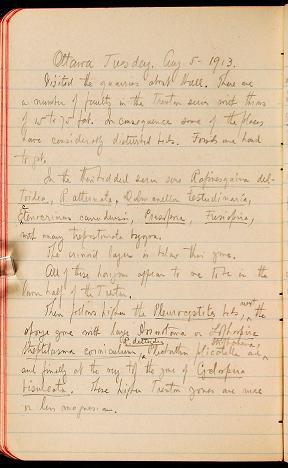 Ottawa Tuesday, Aug 5 - 1913.
Visited the quarries about Hull. There are
a number of faults in the Trenton series with throws
of 10 to 75 feet. In consequence some of the places
have considerably disturbed beds. Fossils are hard
to get.
In the thin bedded series are Rafinesquina del-
toidea, R. alternata, Dalmanella testudinaria,
Ctenocrinus canadensis, Prasopora,
with many trepostomata bryozoa.
The crinoid layer is below this zone.
All of these horizons appear to me to be in the
lower half of the Trenton.
Then follows higher the Pleurocystites beds, next the
sponge zone with large
Streptelasma corniculum, R. deltoidea, Plectambonites plicatella
and finally at the very top the zone of Cyclospira
bisulcata. These higher Trenton zones are more
or less magnesian.